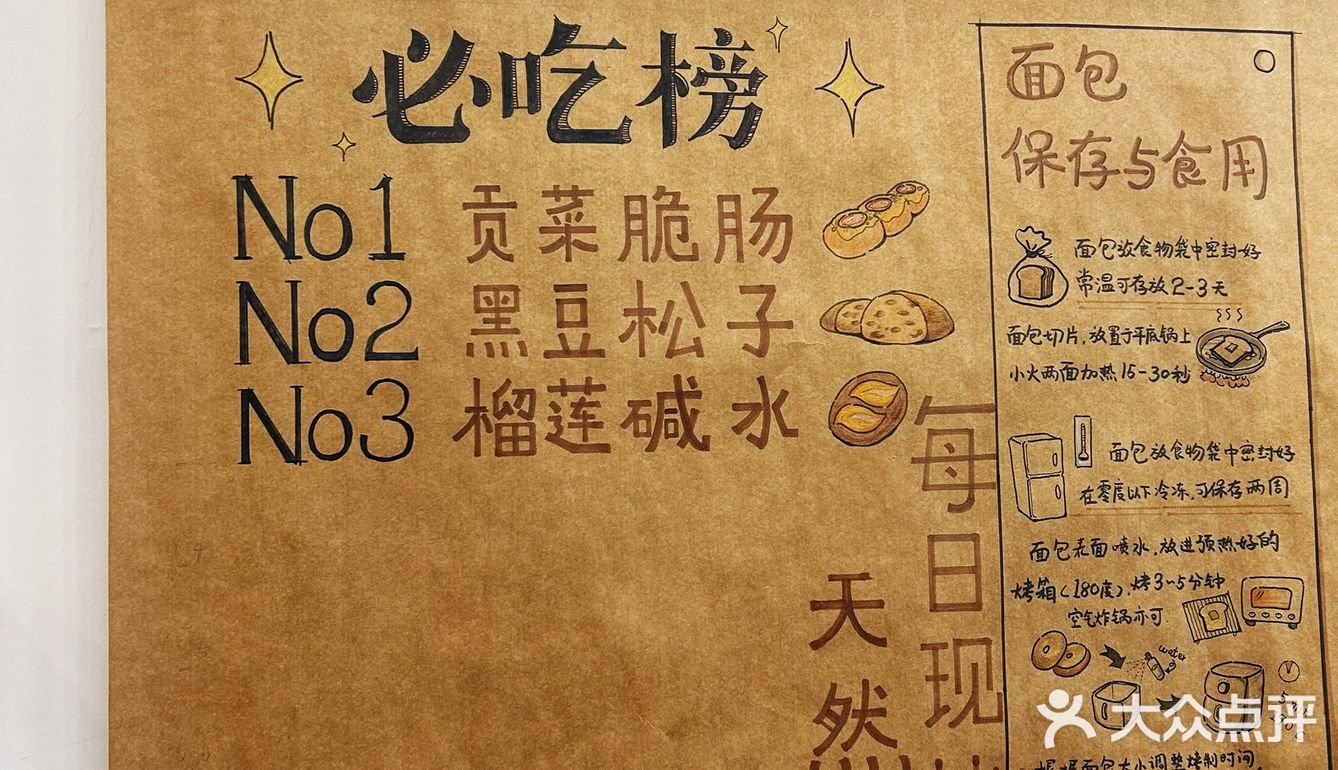 必吃榜
No1 贡菜脆肠
No2 黑豆松子
No3 榴莲碱水
每日现
天然
面包
保存与食用
面包放食物袋中密封好
常温可存放2-3天
面包切片,放置于平底锅上
小火两面加热15-30秒
面包放食物袋中密封好
在零度以下冷冻,可保存两周
面包表面喷水,放进预热好的
烤箱(180度),烤3~5分钟
空气炸锅亦可
water
根据面包大小调整烤制时间
大众点评